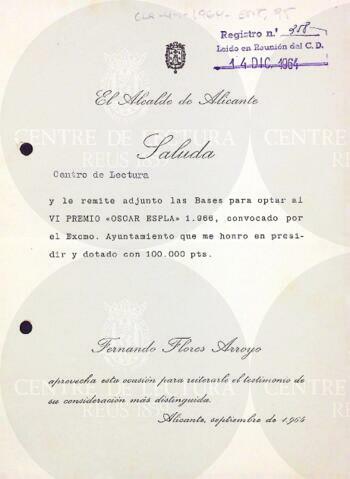 CLA-4m-1964-ENT, 95
Registro n.º 258
Leido en Reunión del C. D.
14 DIC. 1964
El Alcalde de Alicante
CENTRE DE LECTURA
REUS 1859
Saluda
Centro de Lectura
y le remite adjunto las Bases para optar al
VI PREMIO «OSCAR ESPLA» 1.966, convocado por
el Excmo. Ayuntamiento que me honro en presi-
dir y dotado con 100.000 pts.
Fernando Flores Arroyo
aprovecha esta ocasión para reiterarle el testimonio de
su consideración más distinguida.
Alicante, septiembre de 1964
CENTRE DE LECTURA
REUS 1859
CENTRE
REUS